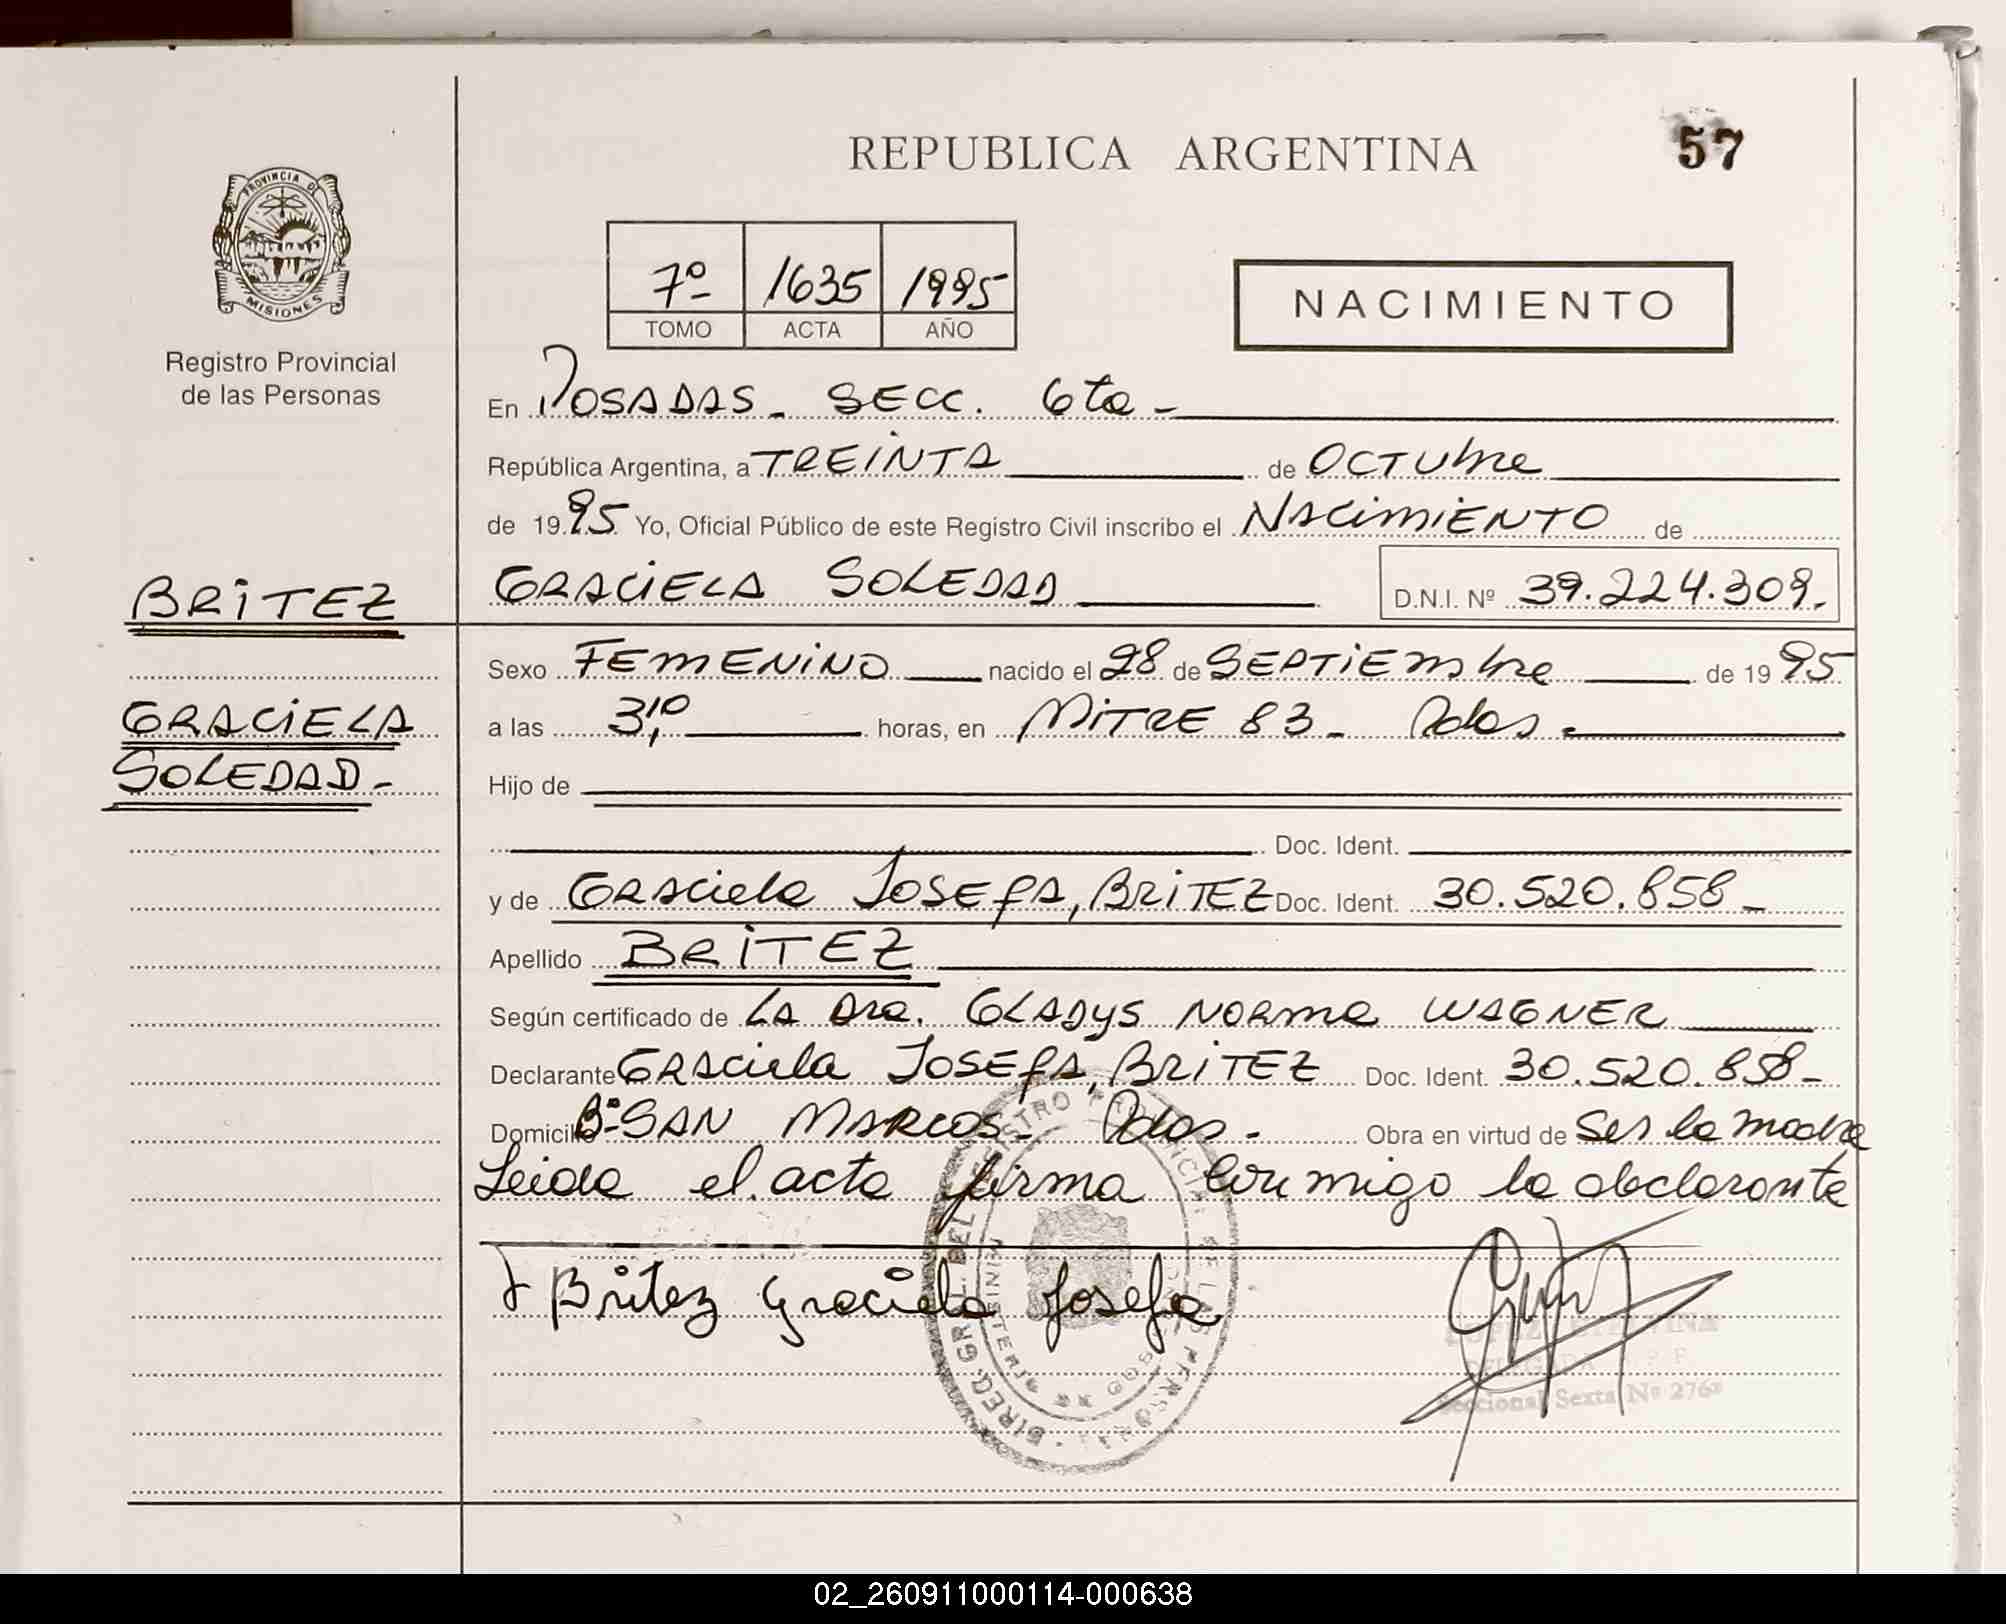 REPUBLICA ARGENTINA
57
PROVINCIA DE
MISIONES
Registro Provincial
de las Personas
7º 1635 1995
TOMO ACTA AÑO
NACIMIENTO
En POSADAS - SECC. 6ta -
República Argentina, a TREINTA de OCTUbre
de 1995 Yo, Oficial Público de este Registro Civil inscribo el NACIMIENTO de
BRITEZ
GRACIELA SOLEDAD D.N.I. Nº 39.224.309.
Sexo FEMENINO nacido el 28 de SEPTIEmbre de 1995
GRACIELA
SOLEDAD -
a las 3,10 horas, en MITRE 83 - Pdas.
Hijo de
Doc. Ident.
y de GRAciela JOSEfA, BRITEZ Doc. Ident. 30.520.858 -
Apellido BRITEZ
Según certificado de LA Dra. GLADYS NORMA WAGNER
Declarante GRAciela JOSEfA, BRITEZ Doc. Ident. 30.520.858 -
Domicilio Bº SAN MARCOS - Pdas. Obra en virtud de Ser la madre
Leida el acta firma conmigo la declarante
Britez Graciela Josefa
DELEGADA
Seccional Sexta Nº 276
02_260911000114-000638